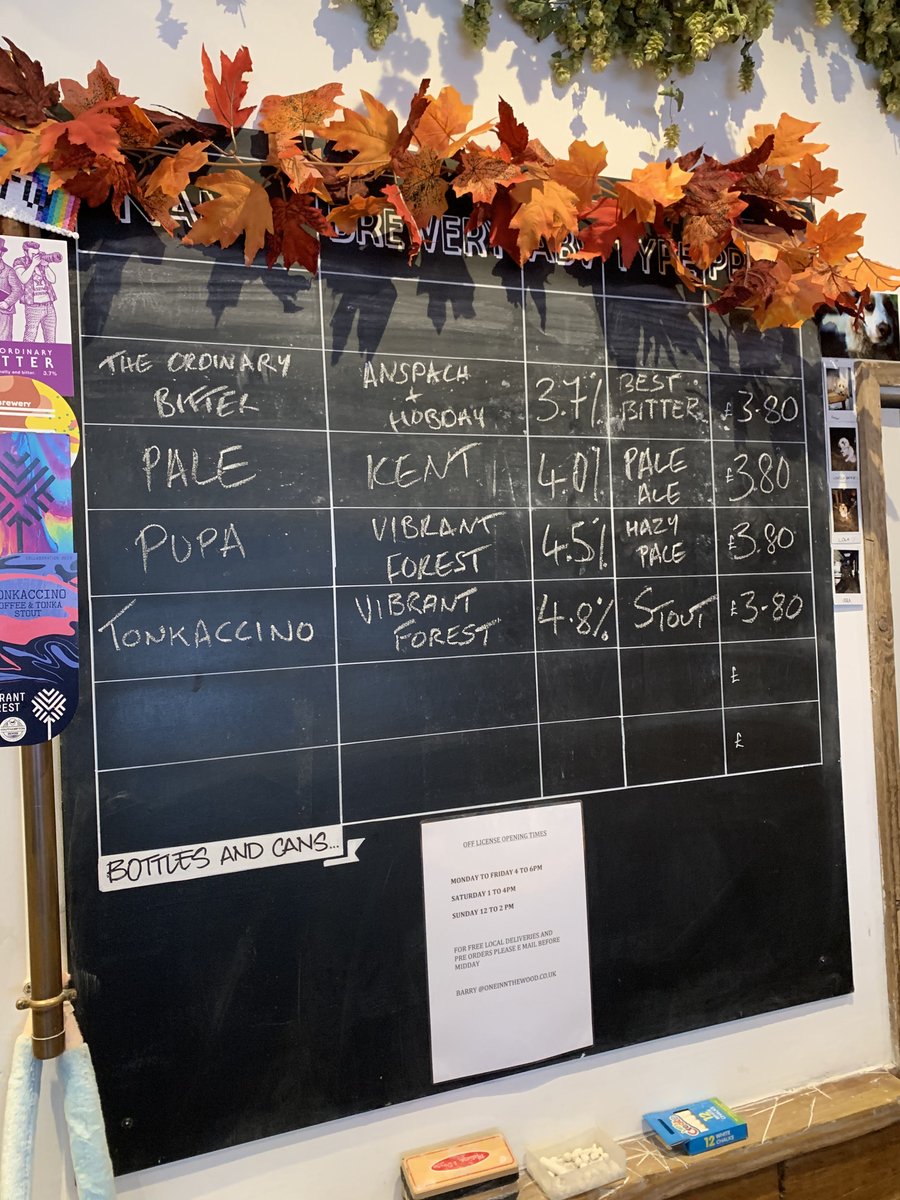 BREWERY ABV TYPE
THE ORDINARY BITTER ANSPACH + HOBDAY 3.7% BEST BITTER £3.80
PALE KENT 4.0% PALE ALE £3.80
PUPA VIBRANT FOREST 4.5% HAZY PALE £3.80
TONKACCINO VIBRANT FOREST 4.8% STOUT £3.80
£
£
BOTTLES AND CANS...
OFF LICENSE OPENING TIMES
MONDAY TO FRIDAY 4 TO 6PM
SATURDAY 1 TO 4PM
SUNDAY 12 TO 2 PM
FOR FREE LOCAL DELIVERIES AND
PRE ORDERS PLEASE E MAIL BEFORE
MIDDAY
BARRY @ONEINNTHEWOOD.CO.UK
ORDINARY
BITTER
3.7%
brewery
COLLABORATION
TONKACCINO
COFFEE & TONKA
STOUT
VIBRANT
FOREST
12 WHITE
CHALKS